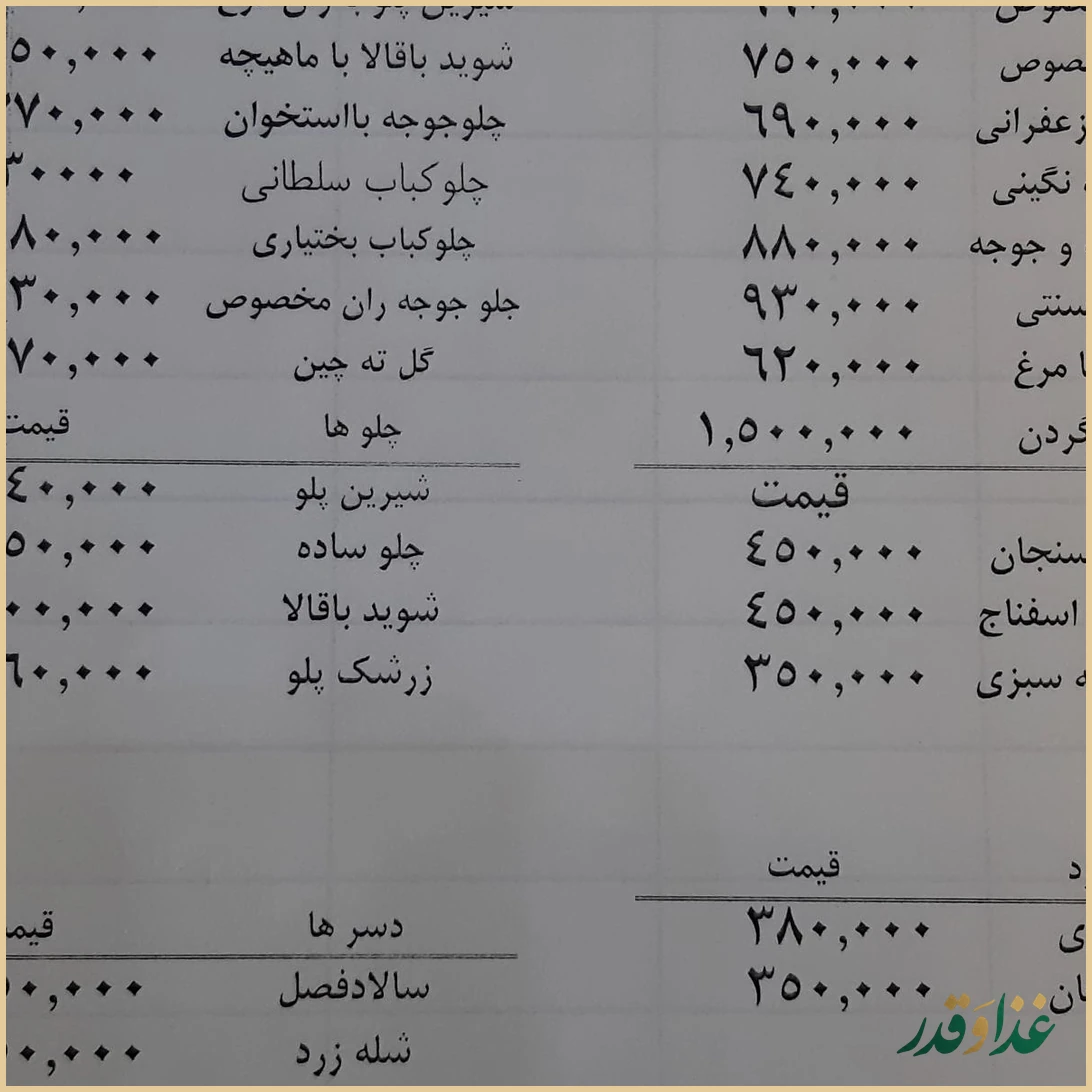 صوص ۷۵۰,۰۰۰
زعفرانی ۶۹۰,۰۰۰
نگینی ۷۴۰,۰۰۰
و جوجه ۸۸۰,۰۰۰
سنتی ۹۳۰,۰۰۰
مرغ ۶۲۰,۰۰۰
گردن ۱,۵۰۰,۰۰۰
قیمت
سنجان ۴۵۰,۰۰۰
اسفناج ۴۵۰,۰۰۰
ه سبزی ۳۵۰,۰۰۰
د قیمت
ی ۳۸۰,۰۰۰
ان ۳۵۰,۰۰۰
شوید باقالا با ماهیچه ۵۰,۰۰۰
چلوجوجه بااستخوان ۷۰,۰۰۰
چلوکباب سلطانی ۳۰۰۰۰
چلوکباب بختیاری ۸۰,۰۰۰
جلو جوجه ران مخصوص ۳۰,۰۰۰
گل ته چین ۷۰,۰۰۰
چلو ها قیمت
شیرین پلو ۴۰,۰۰۰
چلو ساده ۵۰,۰۰۰
شوید باقالا ۰۰,۰۰۰
زرشک پلو ۶۰,۰۰۰
دسر ها قیم
سالادفصل ۰,۰۰۰
شله زرد ۰,۰۰۰
غذاوَقدر